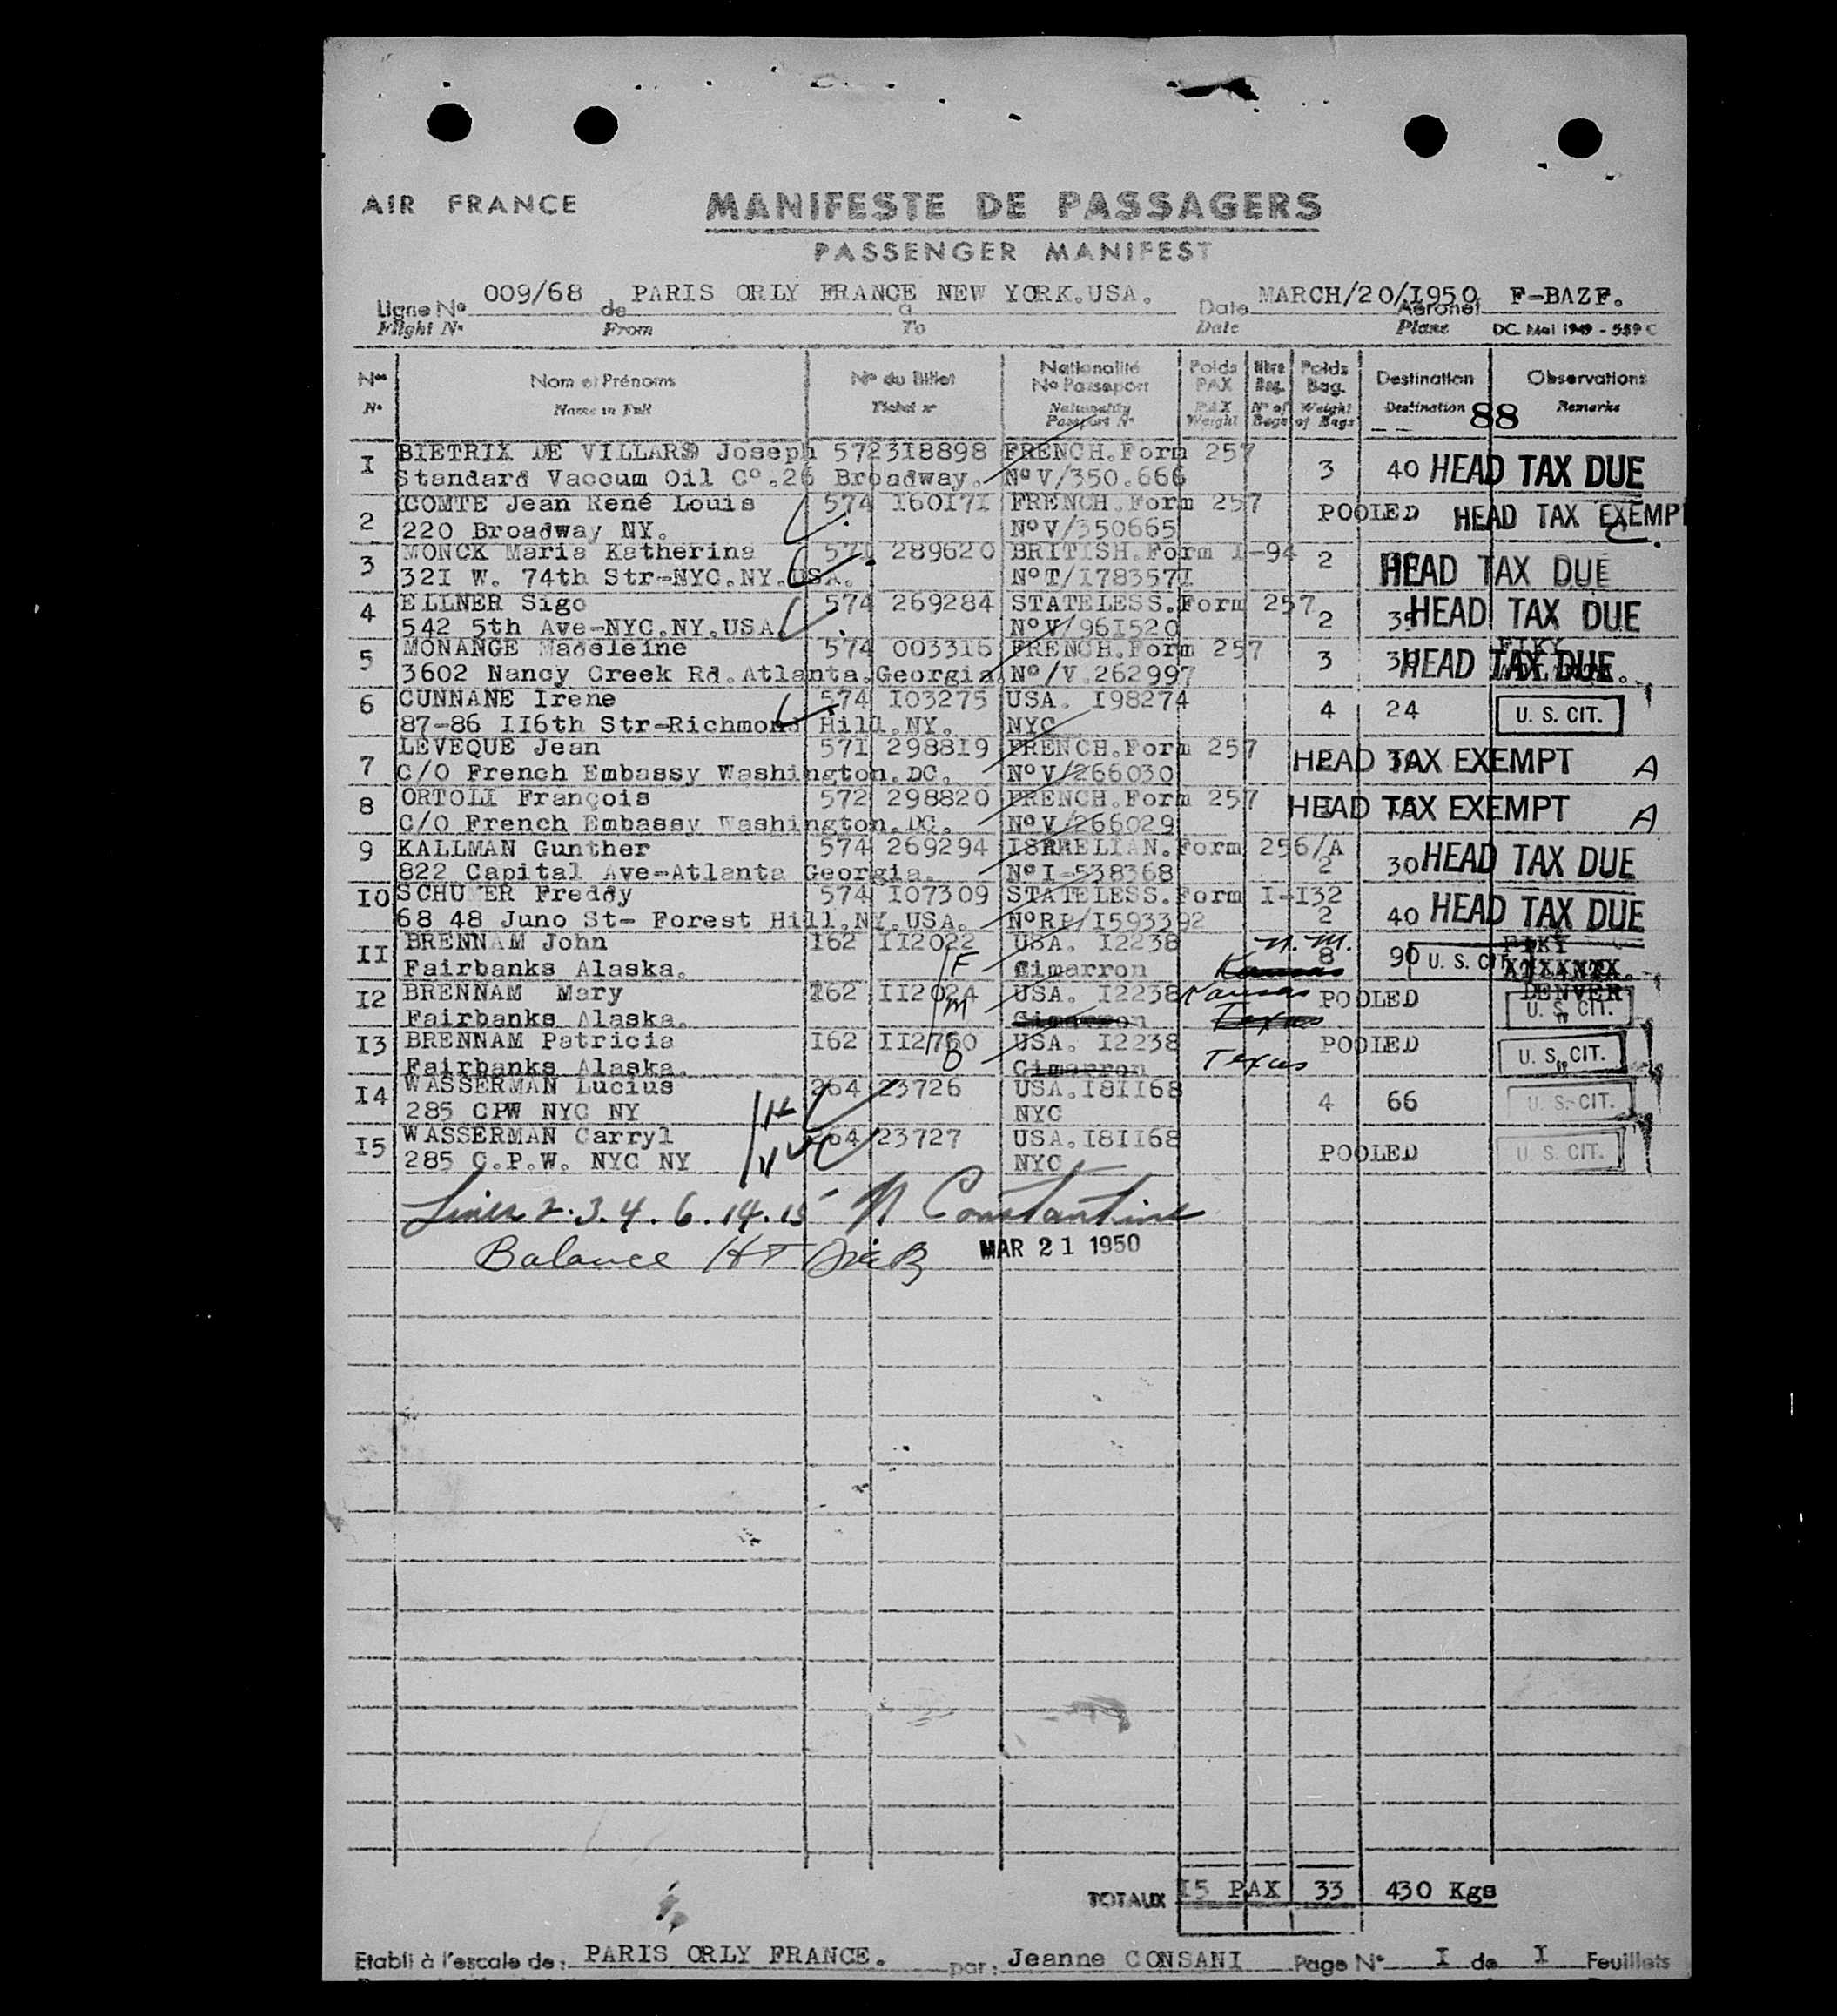 AIR FRANCE MANIFESTE DE PASSAGERS
PASSENGER MANIFEST
Ligne No 009/68 de PARIS ORLY FRANCE à NEW YORK.USA. Date MARCH/20/1950 Aéronef F-BAZF.
Flight No From To Date Plane DC. Mai 1949 - 559 C
Nos Nom et Prénoms No du Billet Nationalité No Passeport Poids PAX Nbre Bag. Poids Bag. Destination Observations
No Name in Full Ticket no Nationality Passport No PAX Weight No of Bags Weight of Bags Destination Remarks
88
I BIETRIX DE VILLARS Joseph 572318898 FRENCH.Form 257 3 40 HEAD TAX DUE
Standard Vaccum Oil Co.26 Broadway. No V/350.666
2 COMTE Jean René Louis 574 160171 FRENCH.Form 257 POOLED HEAD TAX EXEMPT
220 Broadway NY. No V/350665
3 MONCK Maria Katherina 571 289620 BRITISH.Form I-94 2 HEAD TAX DUE
32I W. 74th Str-NYC.NY.USA. No T/I78357I
4 ELLNER Sigo 574 269284 STATELESS.Form 257 2 HEAD TAX DUE
542 5th Ave-NYC.NY.USA. No V/96I520
5 MONANGE Madeleine 574 003316 FRENCH.Form 257 3 HEAD TAX DUE
3602 Nancy Creek Rd.Atlanta.Georgia. No/V.262997
6 CUNNANE Irene 574 I03275 USA. I98274 4 24 U. S. CIT.
87-86 II6th Str-Richmond Hill.NY. NYC
7 LEVEQUE Jean 571 298819 FRENCH.Form 257 HEAD TAX EXEMPT A
C/O French Embassy Washington.DC. No V/266030
8 ORTOLI François 572 298820 FRENCH.Form 257 HEAD TAX EXEMPT A
C/O French Embassy Washington.DC. No V/266029
9 KALLMAN Gunther 574 269294 ISRAELIAN.Form 256/A 2 30 HEAD TAX DUE
822 Capital Ave-Atlanta Georgia. No I-538368
I0 SCHUMER Freddy 574 I07309 STATELESS.Form I-I32 2 40 HEAD TAX DUE
68 48 Juno St- Forest Hill.NY.USA. No RP/I593392
II BRENNAM John I62 II2022 USA. I2238 N.M. 8 90 U. S. CIT.
Fairbanks Alaska. F Cimarron Kansas
I2 BRENNAM Mary I62 II2024 USA. I2238 Kansas POOLED DENVER U. S. CIT.
Fairbanks Alaska. M Cimarron Texas
I3 BRENNAM Patricia I62 II2760 USA. I2238 POOLED U. S. CIT.
Fairbanks Alaska. D Cimarron Texas
I4 WASSERMAN Lucius 264 23726 USA.I8II68 4 66 U. S. CIT.
285 CPW NYC NY H NYC
I5 WASSERMAN Carryl 264 23727 USA.I8II68 POOLED U. S. CIT.
285 C.P.W. NYC NY W NYC
Lines 2.3.4.6.14.15 N Constantine
Balance HT MAR 21 1950
TOTAUX I5 PAX 33 430 Kgs
Etabli à l'escale de: PARIS ORLY FRANCE. par: Jeanne CONSANI Page No I de I Feuillets